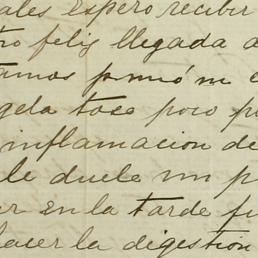 ales espero recibir
tro felis llegada a
tamos
gela tose poco p
inflamacion de
le duele un p
er en la tarde fu
hacer la digestion